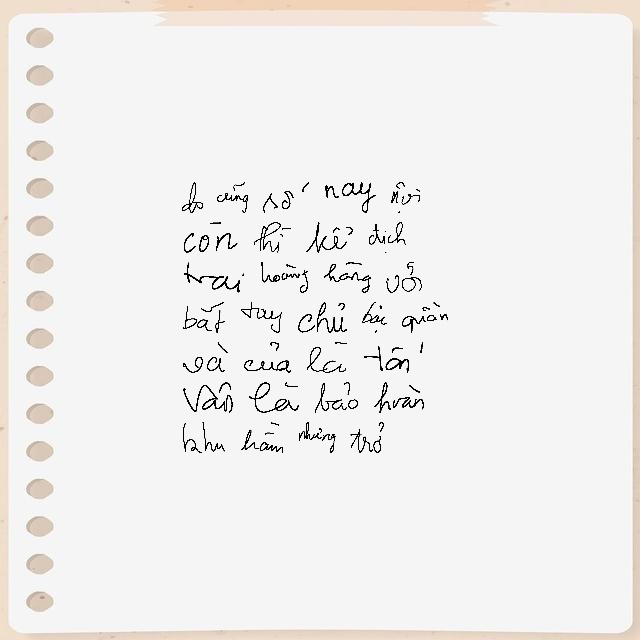 do cũng số nay nơi
còn thì kẻ địch
trai hoàng hằng vỡ
bắt tay chủ bại quần
và của là tấn
Vẫn là bảo hoàn
khu hầm những trở